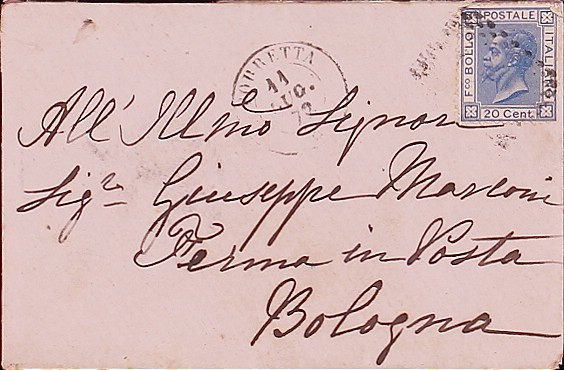 POSTALE
F.co BOLLO
ITALIANO
20 Cent.
PORRETTA
11
LUG.
All' Illmo Signor
Sigr Giuseppe Marconi
Ferma in Posta
Bologna